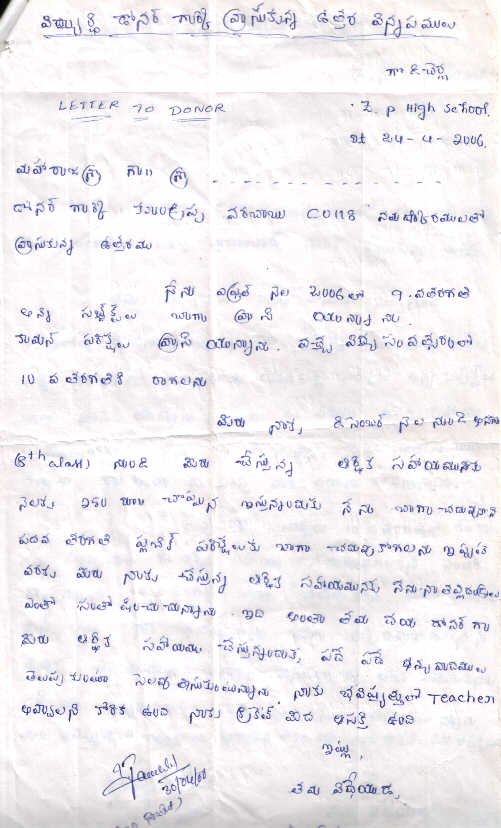 విద్యార్థి డోనర్ గారికి వ్రాసుకున్న ఉత్తర విన్నపములు
LETTER TO DONOR
Z. P High School.
Dt 24-4-2006.
మహారాజశ్రీ గారి శ్రీ
డోనర్ గారికి వరబాబు C0118 నమస్కారములతో
వ్రాసుకున్న ఉత్తరము
నేను ఏప్రిల్ నెల 2006లో 9వ తరగతి
అన్ని సబ్జెక్ట్స్‌లు బాగా వ్రాసి యున్నాను.
కామన్ పరీక్షలు వ్రాసి యున్నాను. వచ్చే విద్యా సంవత్సరంలో
10 వ తరగతికి రాగలను
మీరు నాకు, డిసెంబర్ నెల నుండి అనగా
(8th class) నుండి మీరు చేస్తున్న ఆర్థిక సహాయమునకు
నెలకు 250 రూ॥ చొప్పున ఇస్తున్నందుకు నేను బాగా చదువుచున్నాను
పదవ తరగతి పబ్లిక్ పరీక్షలకు బాగా చదువుకోగలను ఇప్పటి
వరకు మీరు నాకు చేస్తున్న ఆర్థిక సహాయమునకు నేను నా తల్లిదండ్రులు
ఎంతో సంతోషించుచున్నాము. ఇది అంతా తమ దయ డోనర్ గారు
మీరు ఆర్థిక సహాయము చేస్తున్నందుకు, పదే పదే ధన్యవాదములు
తెలుపుకుంటూ సెలవు తీసుకుంటున్నాను. నాకు భవిష్యత్తులో Teacher
అవ్వాలని కోరిక ఉంది నాకు క్రికెట్ మీద ఆసక్తి ఉంది
ఇట్లు,
తమ విధేయుడు,
30/04/06